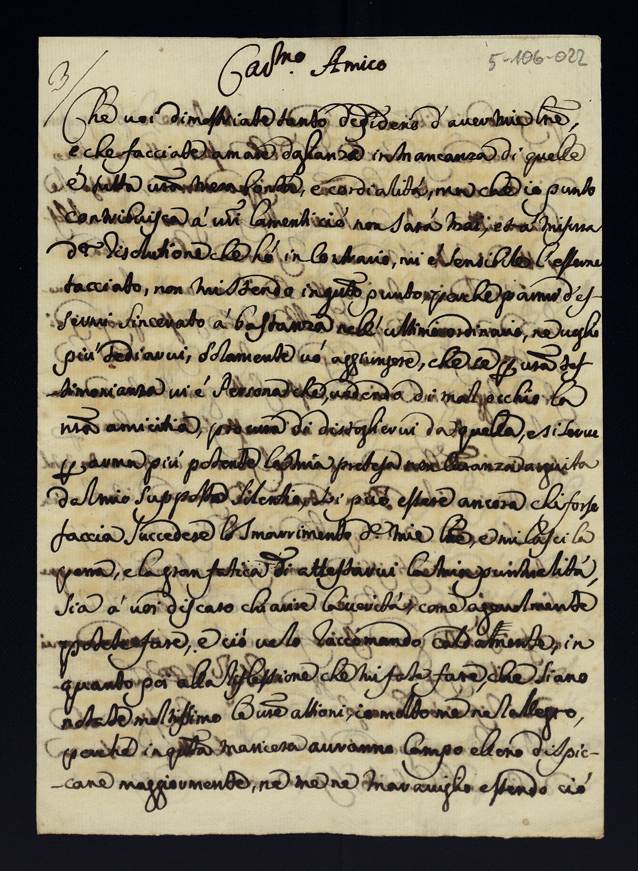 3
5-106-022
Car.mo Amico
Che voi dimostriate tanto desiderio d'aver mie lre,
e che facciate amare doglianze in mancanza di quelle
é tutta vra mera bontà, e cordialitá, ma che io punto
contribuisca á vri lamenti ció non sará mai, e tra misura
risolutione che hó in contrario, mi é sensibile l'esserne
tacciato, non mi stendo in qsto punto, perche parmi d'es-
servi sincerato á bastanza nell' ultimo ordinario, ne voglio
piú tediarvi, solamente vó aggiungere, che se p vra tes-
timonianza vi é Persona che vedendo di mal occhio la
nra amicitia, procura di distoghervi da quella, e si serve
p arma piú potente la mia pretesa non curanza arguita
dal mio supposto silentio, vi puó essere ancora chi forse
faccia succedere lo smarrimento d. mie lre, e mi lasci la
pena, e la gran fatica di attestarvi la mia puntualitá,
sia á voi discaro chiarire la veritá, come agevolmente
potete fare, e ció ve lo raccomando caldamente, in
quanto poi alla riflessione che mi fate fare, che siano
notate moltissimo le vre attioni, io molto me ne rallegro,
perche in qsta maniera avranno campo di spic-
-care maggiormente, ne me ne maraviglio essendo ció